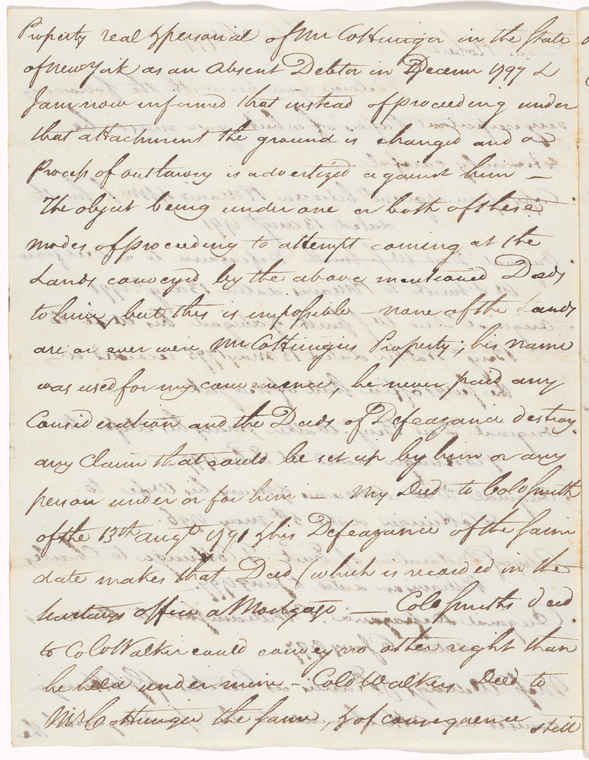 Property real & personal of Mr Cottringer in the State
of New York as an Absent Debtor in Decemr 1797 &
I am now informed that instead of proceeding under
that attachment the ground is changed and a
Process of outlawry is advertized against him –
The object being under one or both of these
modes of proceeding to attempt coming at the
Lands conveyed by the above mentioned Deeds
to him, but this is impossible – none of the Lands
are or ever were Mr Cottringers Property; his name
was used for my convenience, he never paid any
Consideration and the Deeds of Defeazance destroy
any Claim that could be set up by him or any
person under or for him – My Deed to Colo Smith
of the 13th augt 1791 & his Defeazance of the same
date makes that Deed (which is recorded in the
office a Mortgage. — Colo Smiths deed
to Colo Walker could convey no other right than
he held under mine – Colo Walkers Deed to
Mr Cottringer the same, & of consequence still